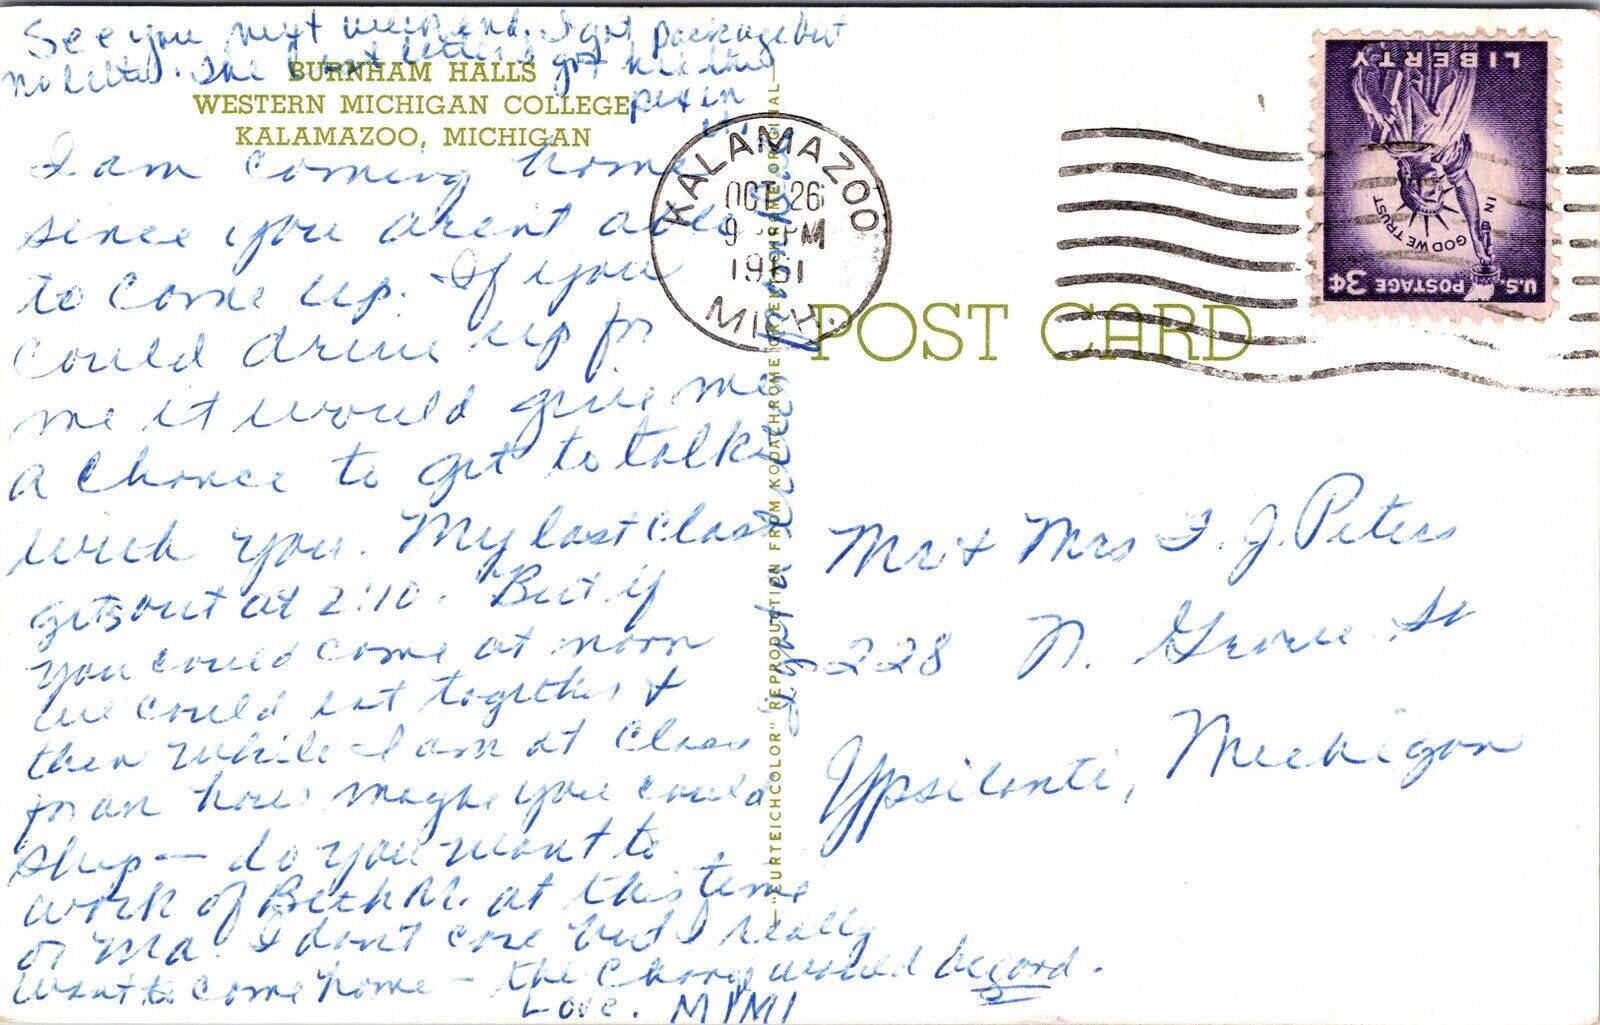 See you next weekend. I got package but
no letter. The letter I got had the
BURNHAM HALLS
pix in
WESTERN MICHIGAN COLLEGE
it.
KALAMAZOO, MICHIGAN
I am coming home
since you arent able
to come up. If you
could drive up for
me it would give me
a chance to get to talk
with you. My last class
gets out at 2:10. But if
you could come at noon
we could eat together &
then while I am at class
for an hour maybe you could
shop — do you want to
work of Beth M. at this time
or Ma. I don't care but I really
want to come home — the change would be good.
Love. MIMI
I got a
"CURTEICHCOLOR" REPRODUCTION FROM KODACHROME OR EKTACHROME ORIGINAL
KALAMAZOO
OCT 26
9 PM
1961
MICH.
POST CARD
U.S. POSTAGE 3¢
IN
GOD WE TRUST
LIBERTY
Mr & Mrs F. J. Peters
228 N. Grove St
Ypsilanti, Michigan